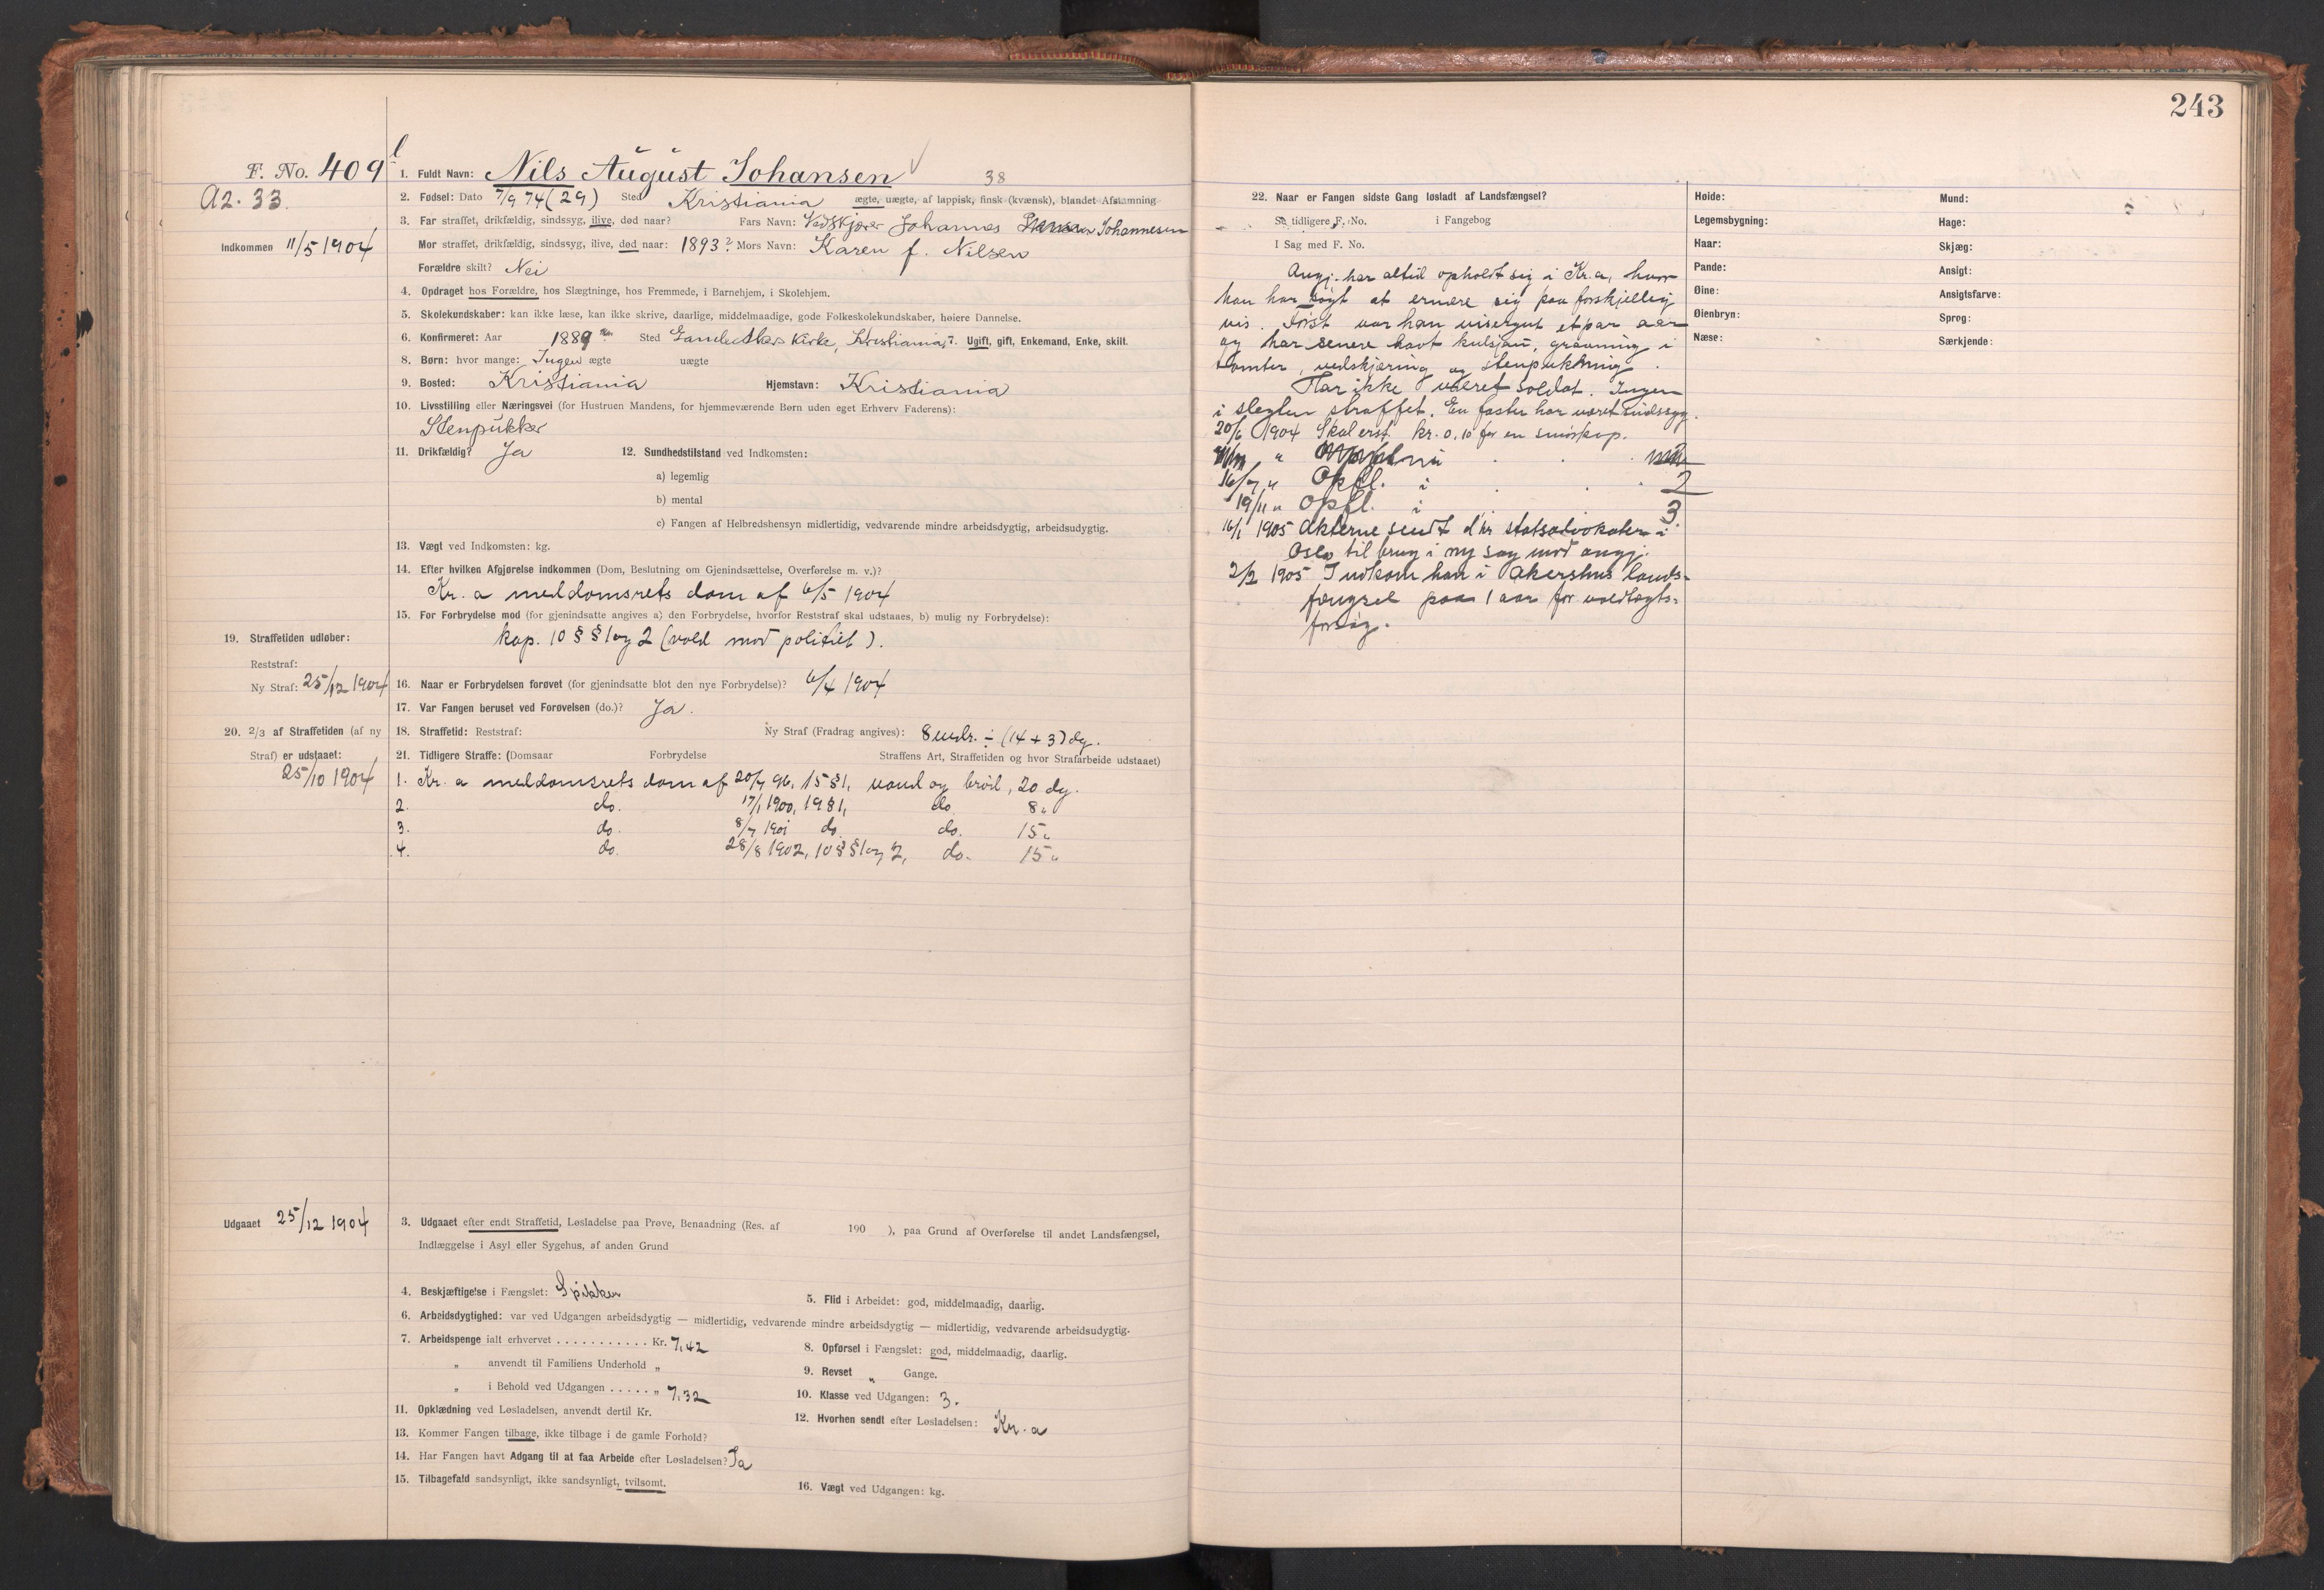 243
F. No. 409
A2. 33.
Indkommen 11/5 1904
1. Fuldt Navn: Nils August Johansen 38
2. Fødsel: Dato 7/9 74 (29) Sted Kristiania ægte, uægte, af lappisk, finsk (kvænsk), blandet Afstamning
3. Far straffet, drikfældig, sindssyg, ilive, død naar? Fars Navn: Vedskjærer Johannes Johannesen
Mor straffet, drikfældig, sindssyg, ilive, død naar: 1893? Mors Navn: Karen f. Nilsen
Forældre skilt? Nei
4. Opdraget hos Forældre, hos Slægtninge, hos Fremmede, i Barnehjem, i Skolehjem.
5. Skolekundskaber: kan ikke læse, kan ikke skrive, daarlige, middelmaadige, gode Folkeskolekundskaber, høiere Dannelse.
6. Konfirmeret: Aar 1889 Sted Gamle Akers Kirke, Kristiania, 7. Ugift, gift, Enkemand, Enke, skilt.
8. Børn: hvor mange: Ingen ægte uægte
9. Bosted: Kristiania Hjemstavn: Kristiania
10. Livsstilling eller Næringsvei (for Hustruen Mandens, for hjemmeværende Børn uden eget Erhverv Faderens):
Stenpukker
11. Drikfældig? Ja 12. Sundhedstilstand ved Indkomsten:
a) legemlig
b) mental
c) Fangen af Helbredshensyn midlertidig, vedvarende mindre arbeidsdygtig, arbeidsudygtig.
13. Vægt ved Indkomsten: kg.
14. Efter hvilken Afgjørelse indkommen (Dom, Beslutning om Gjenindsættelse, Overførelse m. v.)?
Kr.a meddomsrets dom af 6/5 1904
15. For Forbrydelse mod (for gjenindsatte angives a) den Forbrydelse, hvorfor Reststraf skal udstaaes, b) mulig ny Forbrydelse):
kap. 10 § § 1 og 2 (vold mod politiet).
19. Straffetiden udløber:
Reststraf:
Ny Straf: 25/12 1904
16. Naar er Forbrydelsen forøvet (for gjenindsatte blot den nye Forbrydelse)? 6/4 1904
17. Var Fangen beruset ved Forøvelsen (do.)? Ja.
20. 2/3 af Straffetiden (af ny
Straf) er udstaaet:
25/10 1904
18. Straffetid: Reststraf: Ny Straf (Fradrag angives): 8 mdr. ÷ (14 + 3) dg.
21. Tidligere Straffe: (Domsaar Forbrydelse Straffens Art, Straffetiden og hvor Strafarbeide udstaaet)
1. Kr.a meddomsrets dom af 20/7 96, 15 § 1, vand og brød, 20 dg.
2. do. 17/1 1900, 19 § 1, do. 8 "
3. do. 8/7 1901 do. do. 15 "
4. do. 28/8 1902, 10 § § 1 og 2, do. 15 "
Udgaaet 25/12 1904
3. Udgaaet efter endt Straffetid, Løsladelse paa Prøve, Benaadning (Res. af 190 ), paa Grund af Overførelse til andet Landsfængsel,
Indlæggelse i Asyl eller Sygehus, af anden Grund
4. Beskjæftigelse i Fængslet:
5. Flid i Arbeidet: god, middelmaadig, daarlig.
6. Arbeidsdygtighed: var ved Udgangen arbeidsdygtig — midlertidig, vedvarende mindre arbeidsdygtig — midlertidig, vedvarende arbeidsudygtig.
7. Arbeidspenge ialt erhvervet . . . . . . . . . . . Kr. 7,42
8. Opførsel i Fængslet: god, middelmaadig, daarlig.
" anvendt til Familiens Underhold "
9. Revset " Gange.
" i Behold ved Udgangen . . . . . " 7,32
10. Klasse ved Udgangen: 3.
11. Opklædning ved Løsladelsen, anvendt dertil Kr.
12. Hvorhen sendt efter Løsladelsen: Kr.a
13. Kommer Fangen tilbage, ikke tilbage i de gamle Forhold?
14. Har Fangen havt Adgang til at faa Arbeide efter Løsladelsen? Ja
15. Tilbagefald sandsynligt, ikke sandsynligt, tvilsomt.
16. Vægt ved Udgangen: kg.
22. Naar er Fangen sidste Gang løsladt af Landsfængsel?
Se tidligere F. No. i Fangebog
I Sag med F. No.
Angj. har altid opholdt sig i Kr.a, hvor
han har søgt at ernære sig paa forskjellig
vis. Først var han visergut et par aar
og har senere havt kulsjau, gravning i
tomter, vedskjæring og stenpukning.
Har ikke været soldat. Ingen
i slegten straffet. En faster har været sindssyg.
20/6 1904 Skal erst. kr. 0,10 for en
16/7 " Opfl. i 2
19/11 " Opfl. i 3.
16/1 1905 Akterne sendt d'hr statsadvokaten i
Oslo til brug i ny sag mod angj.
2/2 1905 Indkom han i Akershus lands-
fængsel paa 1 aar for voldtægts-
forsøg.
Høide:
Legemsbygning:
Haar:
Pande:
Øine:
Øienbryn:
Næse:
Mund:
Hage:
Skjæg:
Ansigt:
Ansigtsfarve:
Sprog:
Særkjende: